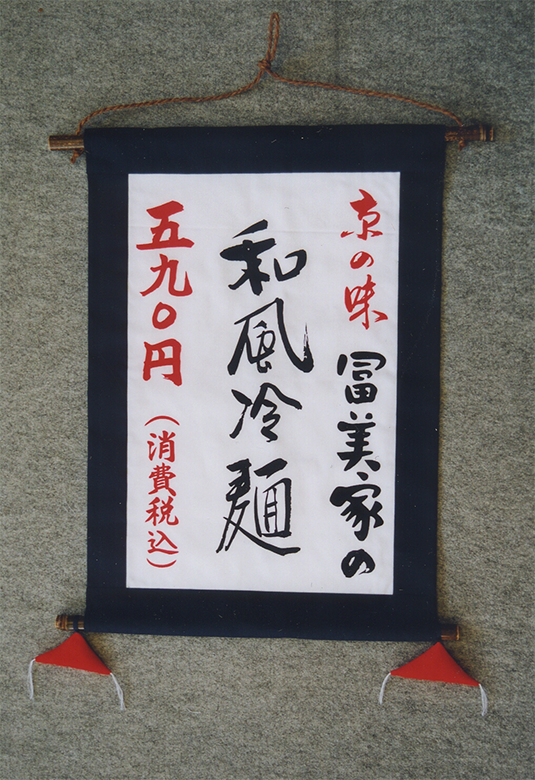 京の味 冨美家の
和風冷麺
五九〇円(消費税込)